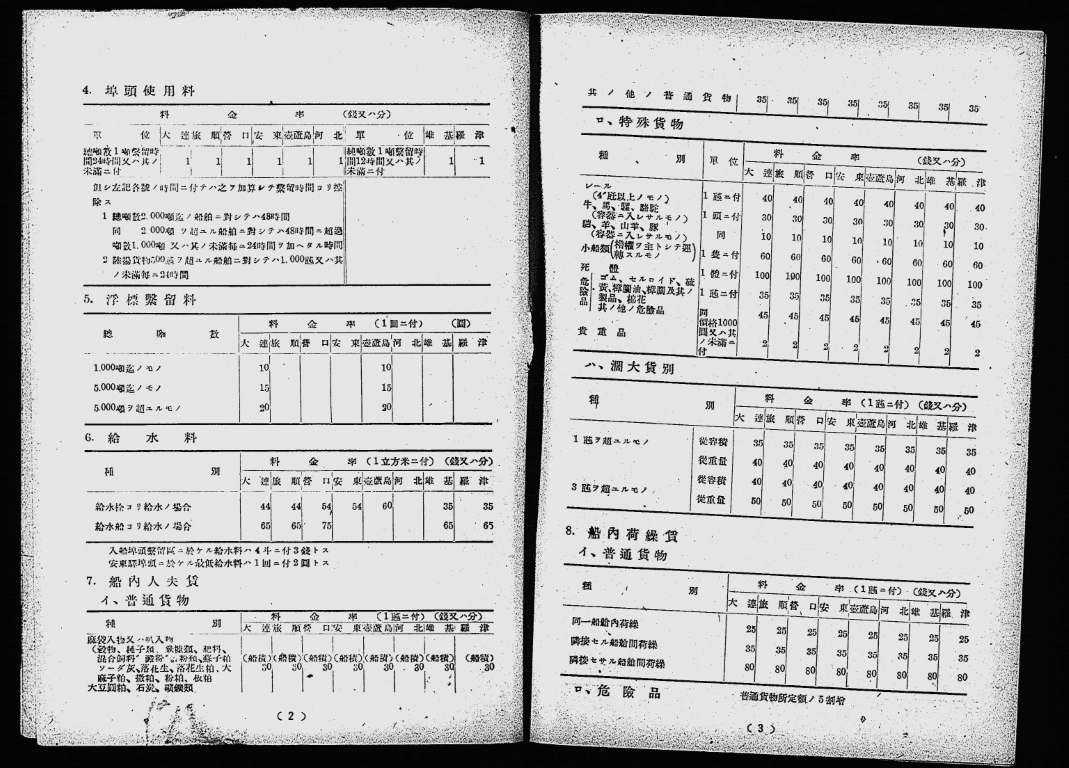 4. 埠頭使用料
料 金 率 (錢又ハ分)
單 位 大連 旅順 營口 安東 壺蘆島 河北 單 位 雄基 羅津
總噸數1噸繫留時
間24時間又ハ其ノ 1 1 1 1 1 1
未滿ニ付
總噸數1噸繫留時
間12時間又ハ其ノ 1 1
未滿ニ付
但シ左記各號ノ時間ニ付テハ之ヲ加算シテ繫留時間ヨリ控
除ス
1 總噸數2.000噸迄ノ船舶ニ對シテハ48時間
同 2.000噸ヲ超ユル船舶ニ對シテハ48時間ニ超過
噸數1.000噸 又ハ其ノ未滿每ニ24時間ヲ加ヘタル時間
2 陸揚貨物500瓲ヲ超ユル船舶ニ對シテハ1.000瓲又ハ其
ノ未滿每ニ24時間
5. 浮標繫留料
總 噸 數 料 金 率 (1回ニ付) (圓)
大連 旅順 營口 安東 壺蘆島 河北 雄基 羅津
1.000噸迄ノモノ 10 10
5.000噸迄ノモノ 15 15
5.000噸ヲ超ユルモノ 20 20
6. 給水料
種 別 料 金 率 (1立方米ニ付) (錢又ハ分)
大連 旅順 營口 安東 壺蘆島 河北 雄基 羅津
給水栓ヨリ給水ノ場合 44 44 54 54 60 35 35
給水船ヨリ給水ノ場合 65 65 75 65 65
入船埠頭繫留區ニ於ケル給水料ハ4斗ニ付3錢トス
安東驛埠頭ニ於ケル最低給水料ハ1回ニ付2圓トス
7. 船內人夫賃
イ、普通貨物
種 別 料 金 率 (1瓲ニ付) (錢又ハ分)
大連 旅順 營口 安東 壺蘆島 河北 雄基 羅津
麻袋入物又ハ叺入物
(穀物、種子類、肥料、
混合飼料、澱粉、蘇子粕
ソーダ灰、落花生、落花生粕、大
麻子粕、撒粕、粉粕、板粕
大豆圓粕、石炭、礦鑛類
(船積) (船積) (船積) (船積) (船積) (船積) (船積) (船積)
30 30 30 30 30 30 30 30
( 2 )
其ノ他ノ普通貨物 35 35 35 35 35 35 35 35
ロ、特殊貨物
種 別 單位 料 金 率 (錢又ハ分)
大連 旅順 營口 安東 壺蘆島 河北 雄基 羅津
レール
(4″瓩以上ノモノ) 1瓲ニ付 40 40 40 40 40 40 40 40
牛、馬、騾、駱駝
(容器ニ入レサルモノ) 1頭ニ付 30 30 30 30 30 30 30 30
驢、羊、山羊、豚
(容器ニ入レサルモノ) 同 10 10 10 10 10 10 10 10
小船類(櫓櫂ヲ主トシテ運
轉スルモノ) 1隻ニ付 60 60 60 60 60 60 60 60
死體 1體ニ付 100 100 100 100 100 100 100 100
危險品 ゴム、セルロイド、硫
黃、樟腦油、樟腦及其ノ 1瓲ニ付 35 35 35 35 35 35 35 35
製品、棉花
其ノ他ノ危險品 同 45 45 45 45 45 45 45 45
貴重品 價格1000
圓又ハ其
ノ未滿ニ
付 2 2 2 2 2 2 2 2
ハ、濶大貨別
種 別 料 金 率 (1瓲ニ付) (錢又ハ分)
大連 旅順 營口 安東 壺蘆島 河北 雄基 羅津
1瓲ヲ超ユルモノ 從容積 35 35 35 35 35 35 35 35
從重量 40 40 40 40 40 40 40 40
3瓲ヲ超ユルモノ 從容積 40 40 40 40 40 40 40 40
從重量 50 50 50 50 50 50 50 50
8. 船內荷繰賃
イ、普通貨物
種 別 料 金 率 (1瓲ニ付) (錢又ハ分)
大連 旅順 營口 安東 壺蘆島 河北 雄基 羅津
同一船艙內荷繰 25 25 25 25 25 25 25 25
隣接セル船艙間荷繰 35 35 35 35 35 35 35 35
隣接セサル船艙間荷繰 80 80 80 80 80 80 80 80
ロ、危險品 普通貨物所定額ノ5割增
( 3 )